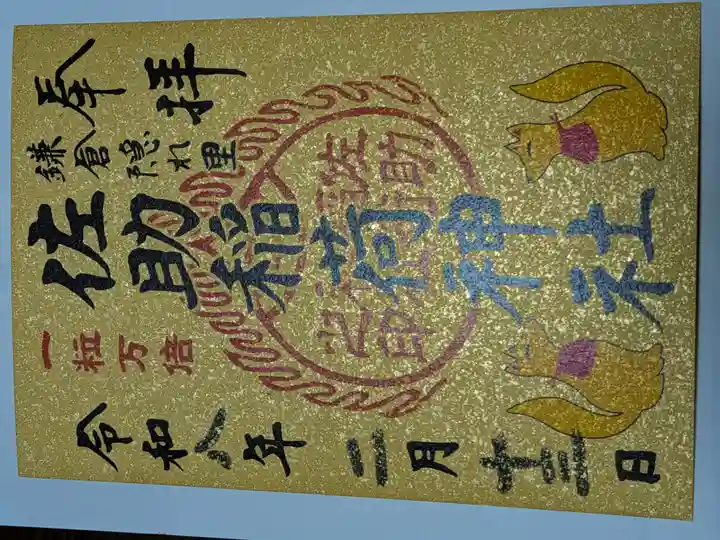 奉拝
鎌倉隠れ里
佐助稲荷神社
一粒万倍
令和八年二月十三日
佐助稲荷神社之印